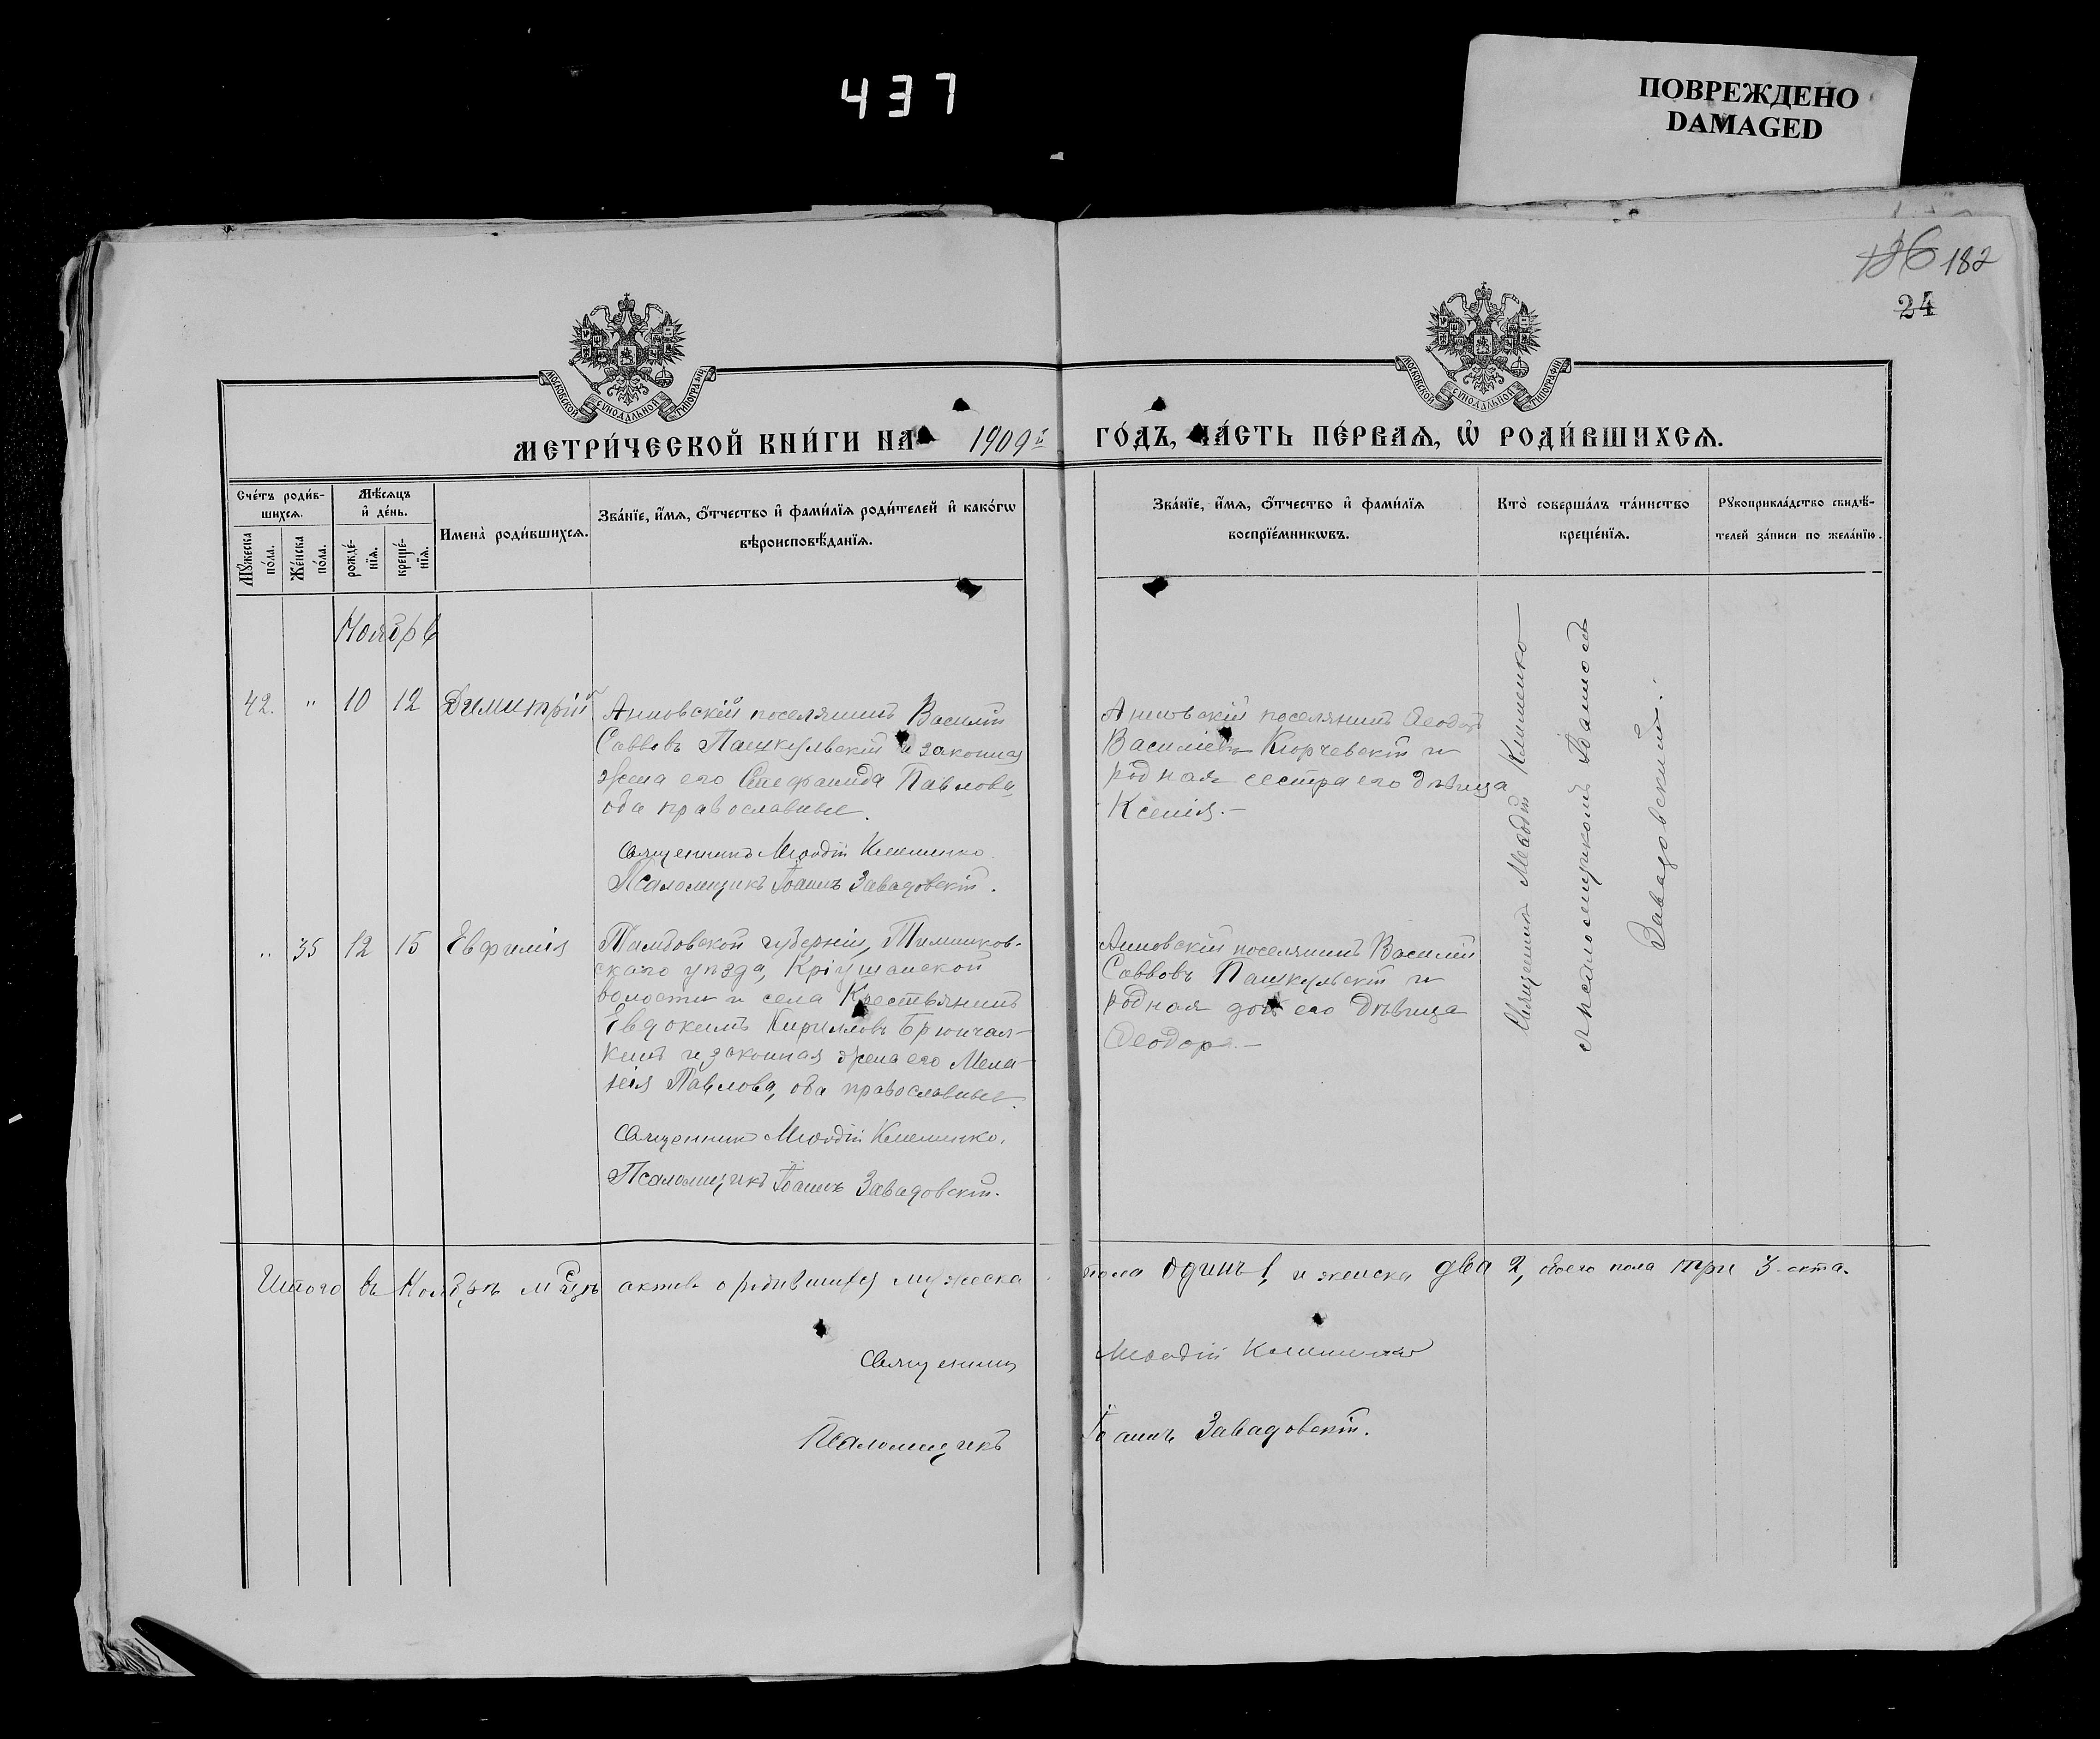 437
ПОВРЕЖДЕНО
DAMAGED
136 182
24
МОСКОВСКОЙ СУНОДАЛЬНОЙ ТИПОГРАФІИ
МОСКОВСКОЙ СУНОДАЛЬНОЙ ТИПОГРАФІИ
МЕТРИ́ЧЕСКОЙ КНИ́ГИ НА 1909й ГО́ДЪ, ЧА́СТЬ ПЕ́РВАЯ, Ѡ РОДИ́ВШИХСЯ.
Сче́тъ роди́в-
шихся.
Мꙋ́жеска
по́ла.
Же́нска
по́ла.
Мѣ́сяцъ
и҆ де́нь.
рожде́-
нїя.
креще́-
нїя.
Имена̀ роди́вшихся.
Зва́нїе, и҆́мя, ѻ҆́тчество и҆ фами́лїя роди́телей и҆ како́гѡ
вѣроисповѣ́данїя.
Зва́нїе, и҆́мя, ѻ҆́тчество и҆ фами́лїя
воспрїе́мникѡвъ.
Кто̀ соверша́лъ та́инство
креще́нїя.
Рꙋкоприкла́дство свидѣ́-
телей за́писи по жела́нїю.
Ноябрь
42. " 10 12 Димитрій
Анновскій поселянинъ Василій
Саввовъ Пашкульскій и законная
жена его Стефанида Павлова,
оба православные.
Священникъ Меѳодій Клименко.
Псаломщикъ Іоаннъ Завадовскій.
Анновскій поселянинъ Ѳеодотъ
Василіевъ Кюрчевскій и
родная сестра его дѣвица
Ксенія.-
Священникъ Меѳодій Клименко
съ псаломщикомъ Іоанномъ
Завадовскимъ.
" 35 12 15 Евфимія
Тамбовской губерніи, Темников-
скаго уѣзда, Кріушанской
волости и села Крестьянинъ
Евдокимъ Кирилловъ
и законная жена его Мела-
нія Павлова, оба православные.
Священникъ Меѳодій Клименко.
Псаломщикъ Іоаннъ Завадовскій.
Анновскій поселянинъ Василій
Саввовъ Пашкульскій и
родная дочь его дѣвица
Ѳеодора.-
Итого въ Ноябрѣ мцѣ актовъ о родившихся мужеска пола одинъ 1, и женска два 2, обоего пола три 3 акта.
Священникъ Меѳодій Клименко
Псаломщикъ Іоаннъ Завадовскій.